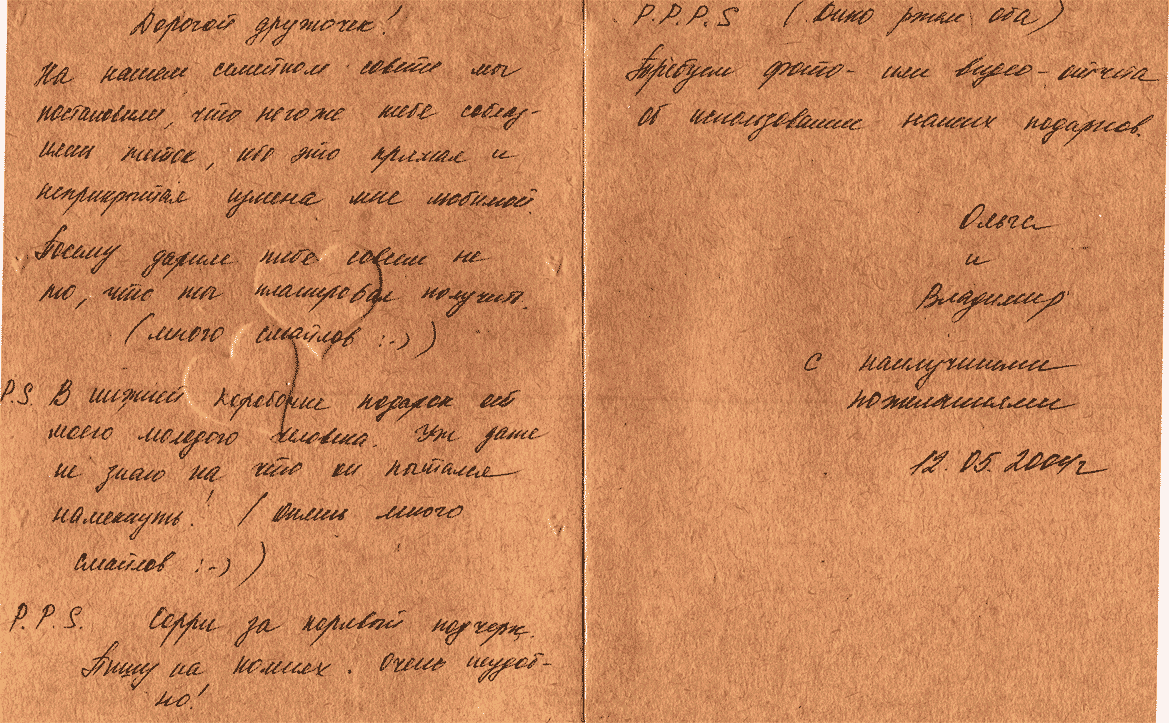 Дорогой дружочек!
На нашем семейном совете мы
постановили, что негоже тебе соблаз-
нять теток, ибо это прямая и
неприкрытая измена мне любимой.
Посему дарим тебе совсем не
то, что ты планировал получить.
(много смайлов :-) )
P.S. В нижней коробочке подарок от
моего молодого человека. Уж даже
не знаю на что он пытался
намекнуть! (Опять много
смайлов :-) )
P.P.S. Сорри за корявый подчерк.
Пишу на коленях. Очень неудоб-
но!
P.P.P.S (Дико ржем оба)
Требуем фото- или видео-отчета
об использовании наших подарков.
Ольга
и
Владимир
с наилучшими
пожеланиями
12.05.2004г